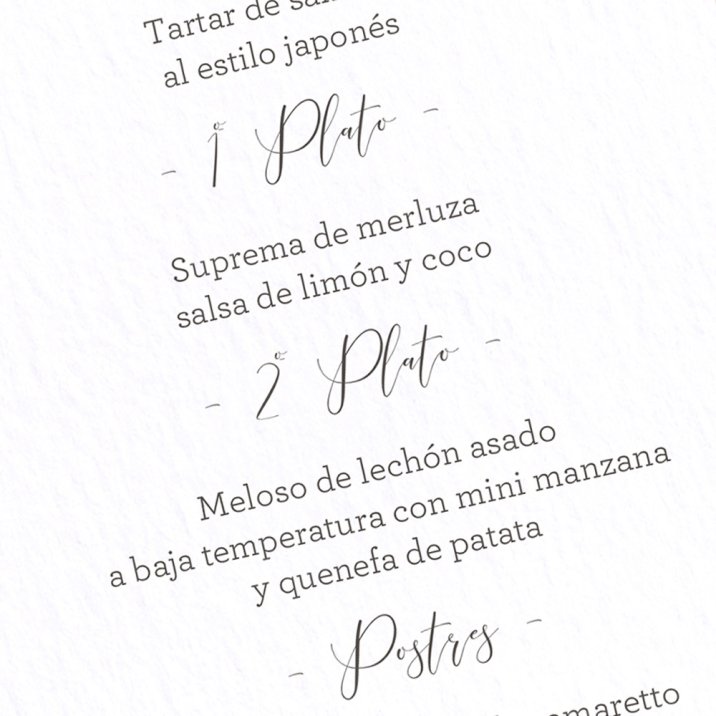 Tartar de
al estilo japonés
- 1º Plato -
Suprema de merluza
salsa de limón y coco
- 2º Plato -
Meloso de lechón asado
a baja temperatura con mini manzana
y quenefa de patata
- Postres -